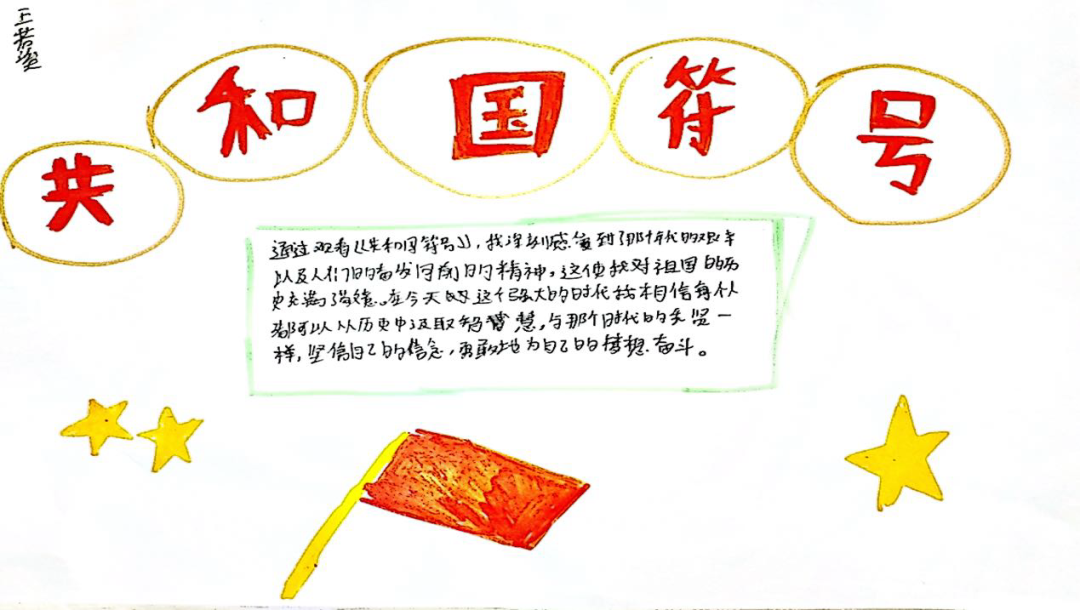 王若
共和国符号
通过观看《共和国符号》，我深刻感受到了那个年代的艰辛
以及人们的奋发向前的精神，这使我对祖国的历
史充满了情。在今天这个强大的时代我相信每个人
都可以从历史中汲取智慧，与那个时代的先贤一
样，坚信自己的信念，勇敢地为自己的梦想奋斗。